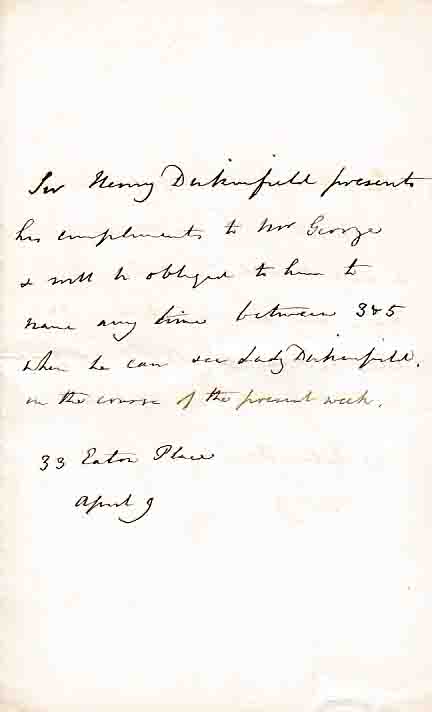 Sir Henry Dukinfield presents
his compliments to Mr George
& will be obliged to him to
name any time between 3 & 5
when he can see Lady Dukinfield,
in the course of the present week.
33 Eaton Place
April 9